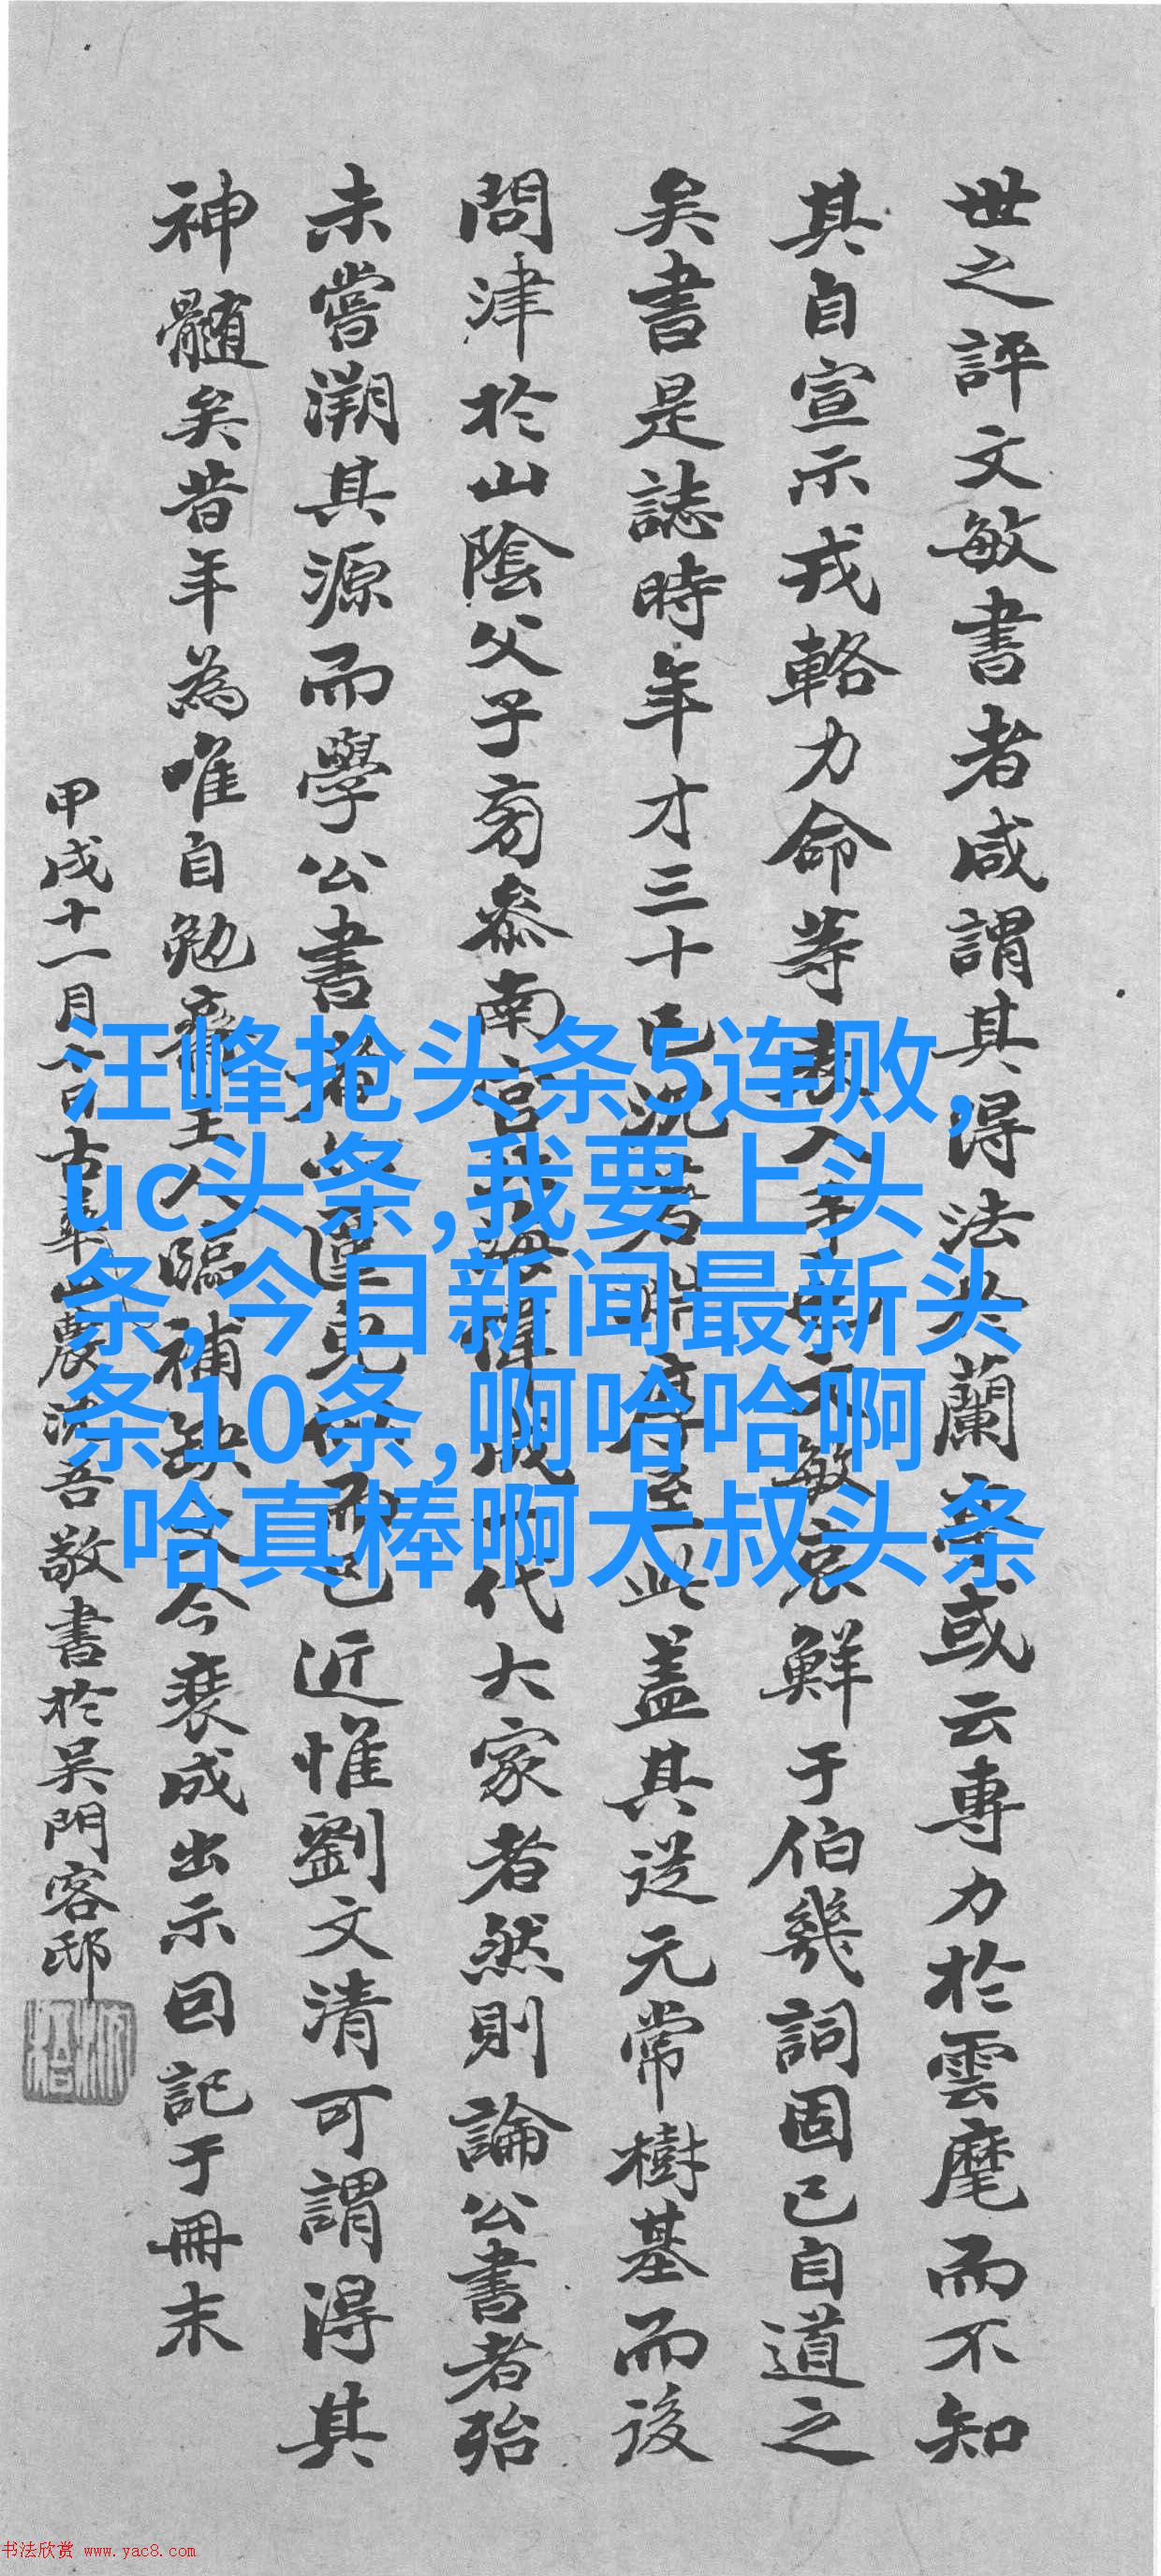 世之評文敏書者咸謂其得法於蘭亭或云專力於雲麾而不知
其自宣示戎輅力命等表入手也文敏哀鮮于伯幾詞固已自道之
矣書是誌時年才三十已沉着酣厚至此盖其從元常樹基而後
問津於山陰父子旁叅南宮北海俾成一代大家者然則論公書者殆
未嘗溯其源而學公書者
近惟劉文清可謂得其
神髓矣昔年為唯自勉齋主人臨補缺文今裴成出示囙記于冊末
甲戌十一月八日古華山農沈吾敬書於吴門客邸
汪峰抢头条5连败,
uc头条,我要上头
条,今日新闻最新头
条10条,啊哈哈啊
哈真棒啊大叔头条
书法欣赏 www.yac8.com